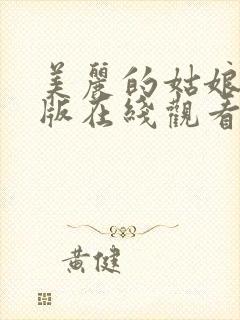 美麗的姑娘
版在綫觀看
黃健